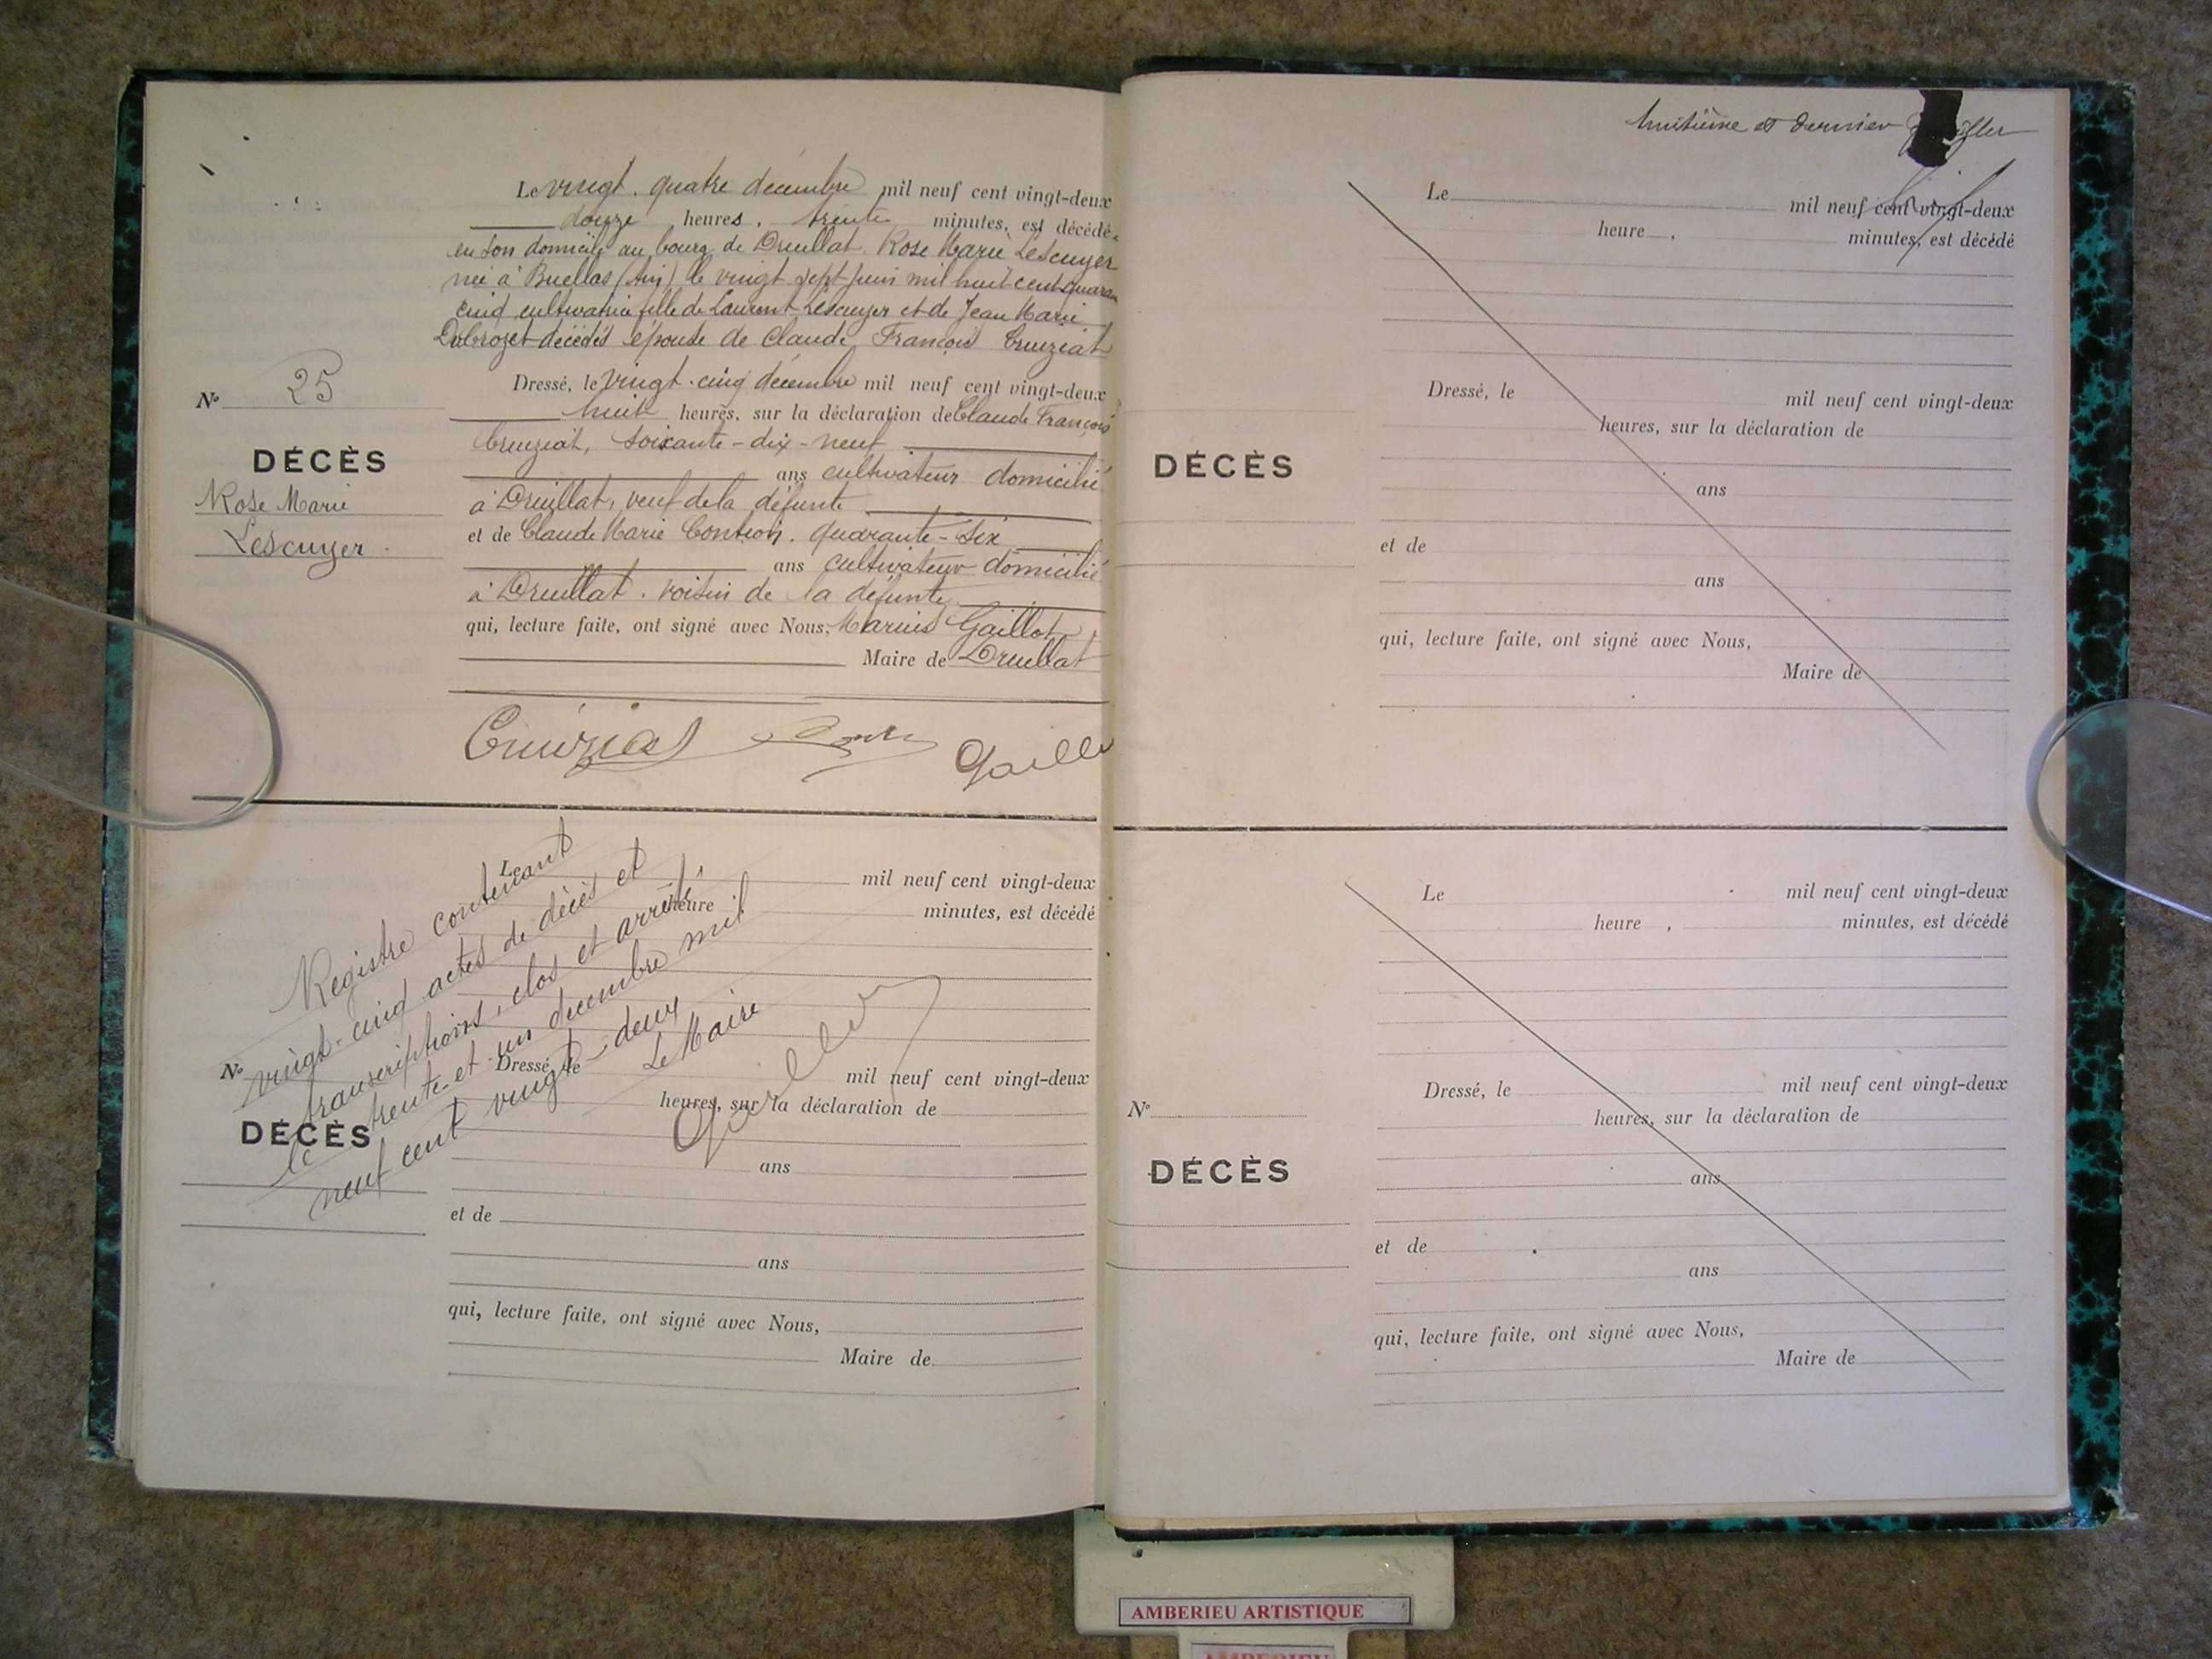 Le vingt-quatre décembre mil neuf cent vingt-deux
douze heures, trente minutes, est décédée
en son domicile au bourg de Druillat Rose Marie Lescuyer
née à Buellas (Ain) le vingt sept juin mil huit cent quaran
cinq cultivatrice fille de Laurent Lescuyer et de Jean Marie
décédés épouse de Claude François Cruiziat
Nº 25
DÉCÈS
Rose Marie
Lescuyer
Dressé, le vingt-cinq décembre mil neuf cent vingt-deux
huit heures, sur la déclaration de Claude François
Cruiziat, soixante-dix-neuf
ans cultivateur domicilié
à Druillat, veuf de la défunte
et de Claude Marie quarante-six
ans cultivateur domicilié
à Druillat. voisin de la défunte
qui, lecture faite, ont signé avec Nous, Marius Gaillot,
Maire de Druillat
Cruiziat
Le mil neuf cent vingt-deux
heure minutes, est décédé
Registre contenant
vingt-cinq actes de décès et
transcriptions, clos et arrêté,
le trente-et-un décembre mil
neuf cent vingt-deux
Le Maire
Nº
DÉCÈS
Dressé, le mil neuf cent vingt-deux
heures, sur la déclaration de
ans
et de
ans
qui, lecture faite, ont signé avec Nous,
Maire de
huitième et dernier
Le mil neuf cent vingt-deux
heure , minutes, est décédé
DÉCÈS
Dressé, le mil neuf cent vingt-deux
heures, sur la déclaration de
ans
et de
ans
qui, lecture faite, ont signé avec Nous,
Maire de
Le mil neuf cent vingt-deux
heure , minutes, est décédé
Nº
DÉCÈS
Dressé, le mil neuf cent vingt-deux
heures, sur la déclaration de
ans
et de
ans
qui, lecture faite, ont signé avec Nous,
Maire de
AMBERIEU ARTISTIQUE
AMBERIEU